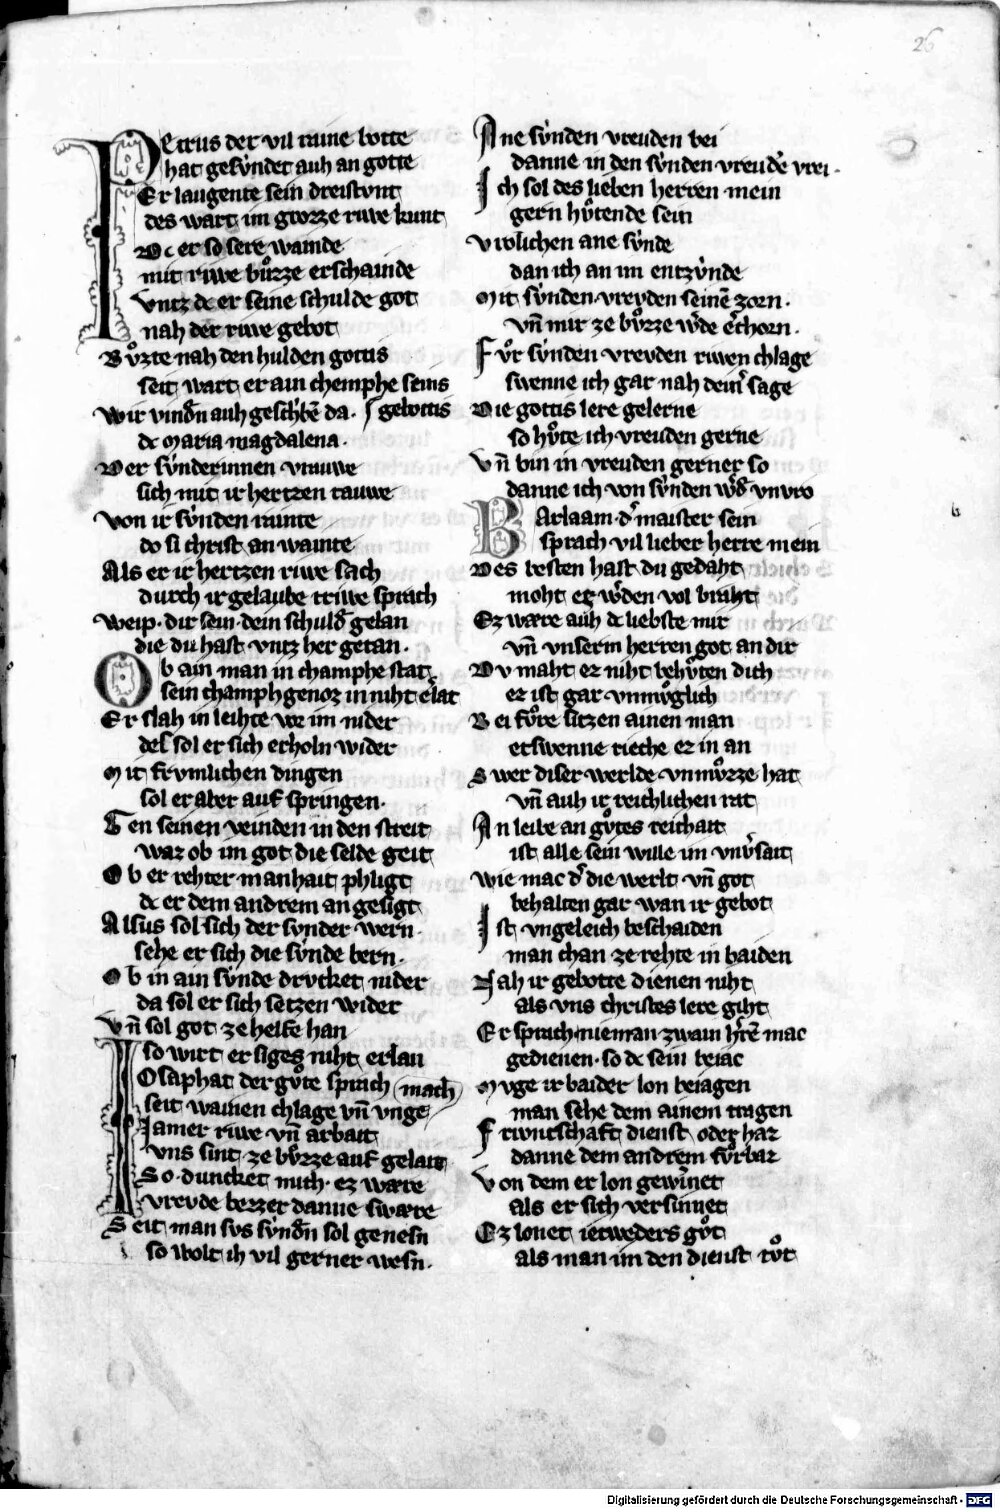 26
Petrus der vil raine botte
hat gesu̍ndet auh an gotte
Er laugente sein dreistunt
des wart im grozze riwe kunt
Dc er so sere wainde
mit riwe bu̍zze erschainde
vntz dc er seine schulde got
nah der riwe gebot
Bůzte nah den hulden gottis
seit wart er ain chemphe seins
gebottis
Wir vindn̄ auh geschbē da.
dc Maria Magdalena.
Der sv̍nderinnen vrauwe
sich mit ir hertzen tauwe
Von ir sv̍nden rainte
do si christ an wainte
Als er ir hertzen riwe sach
durch ir gelaube triwe sprach
Weip. dir sein. dein schuld̓ gelan
die du hast vntz her getan.
Ob ain man in champhe stat
sein champhgenoz in niht er̓lat
Er slah in leihte vor im nider
des sol er sich erholn wider
Mit frvmlichen dingen
sol er aber auf springen.
Gen seinen veinden in den streit
waz ob im got die selde geit
Ob er rehter manhait phligt
dc er dem andrem angesigt
Alsus sol sich der svnder wern
sehe er sich die sv̍nde bern.
Ob in ain sv̍nde drvcket nider
da sol er sich setzen wider
Vn̄ sol got ze helfe han
so wirt er siges niht erlan
Iosaphat der gůte sprach
seit wainen chlage vn̄ vnge mach
Iamer riwe vn̄ arbait
vns sint ze bv̊zze auf gelait
So. duncket mich. ez ware
vrevde bezzer danne sware
Seit man svs sv̍ndn̄ sol genesn
so wolt ih vil gerner wesn.
Ane sv̍nden vreuden bei
danne in den sv̍nden vreudē vrei.
Ich sol des lieben herren mein
gern hv̊tende sein
Vrolichen ane sv̍nde
dan ich an im entzv̍nde
Mit sv̍nden vrevden seinē zorn.
vn̄ mir ze bv̊zze w̓de er̓chorn.
Fu̍r sv̍nden vrevden riwen chlage
swenne ich gar nah dein̓ sage
Die gottis lere gelerne
so hv̊te ich vreuden gerne
Vn̄ bin in vreuden gerner so
danne ich von sv̍nden w̓d̓ vnvro
Barlaam. d̓ maister sein
sprach vil lieber herre mein
Des besten hast du gedaht
moht ez w̓den vol braht
Ez ware auh dc liebste mir
vn̄ vnserm herren got an dir
Dv maht ez niht behv̊ten dich
er ist gar vnmv̊glich
Bei fv̊re sitzen ainen man
etswenne rieche ez in an
Swer diser werlde vnmv̊zze hat
vn̄ auh ir reichlichen rat
An leibe an gůtes reichait
ist alle sein wille im vnv̓sait
Wie mac d̓ die werlt vn̄ got
behalten gar wan ir gebot
Ist vngeleich beschaiden
man chan ze rehte in baiden
Nah ir gebotte dienen niht
als vns christes lere giht
Er sprach. nieman zwain hr̓ē mac
gedienen. so dc sein beiac
Mvge ir baider lon beiagen
man sehe dem ainem tragen
Friwntschaft dienst oder haz
danne dem andrem fv̊rbaz
Von dem er lon gewinet
als er sich versinnet
Ez lonet ietweders gůt
als man im den dienst tůt
Digitalisierung gefördert durch die Deutsche Forschungsgemeinschaft - DFG